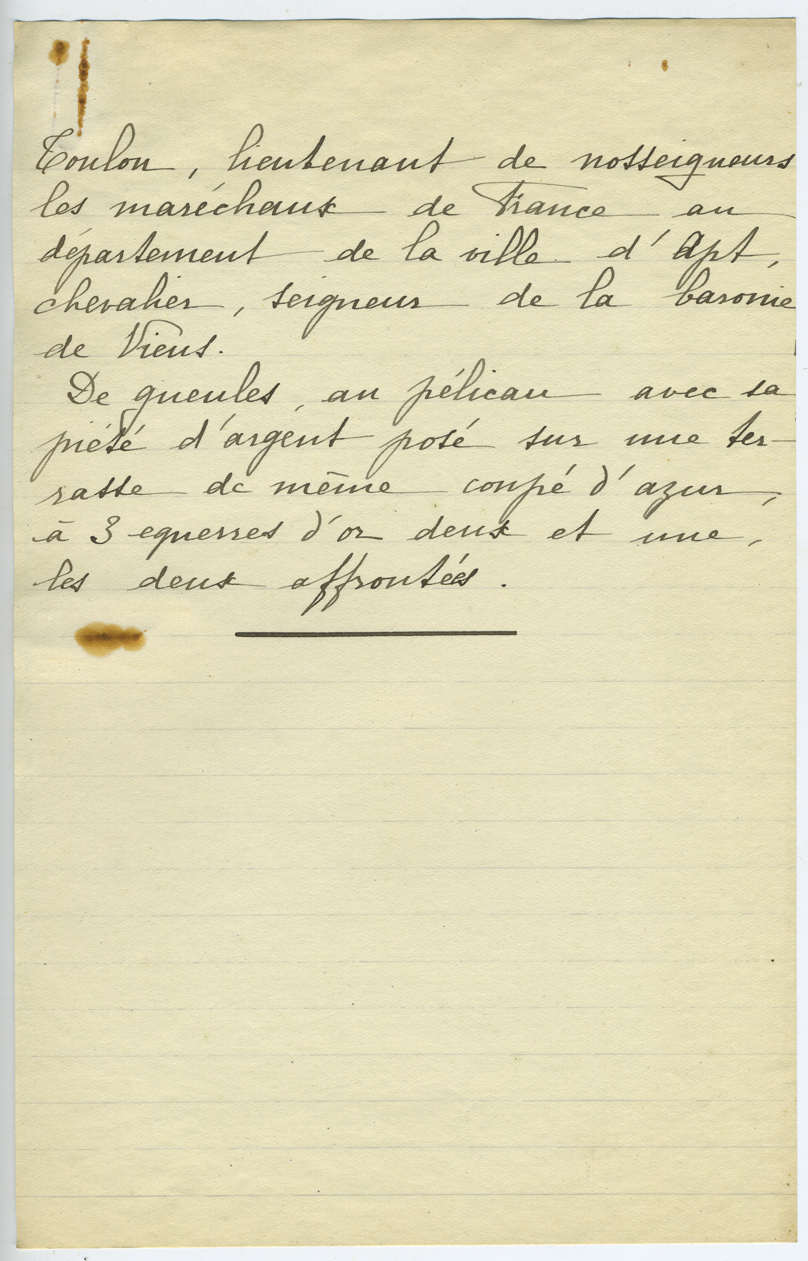 Toulon, lieutenant de nosseigneurs
les maréchaux de France au
département de la ville d'Apt,
chevalier, seigneur de la baronie
de Viens.
De gueules, au pélican avec sa
piété d'argent posé sur une ter-
rasse de même coupé d'azur,
à 3 equerres d'or deux et une,
les deux affrontées.